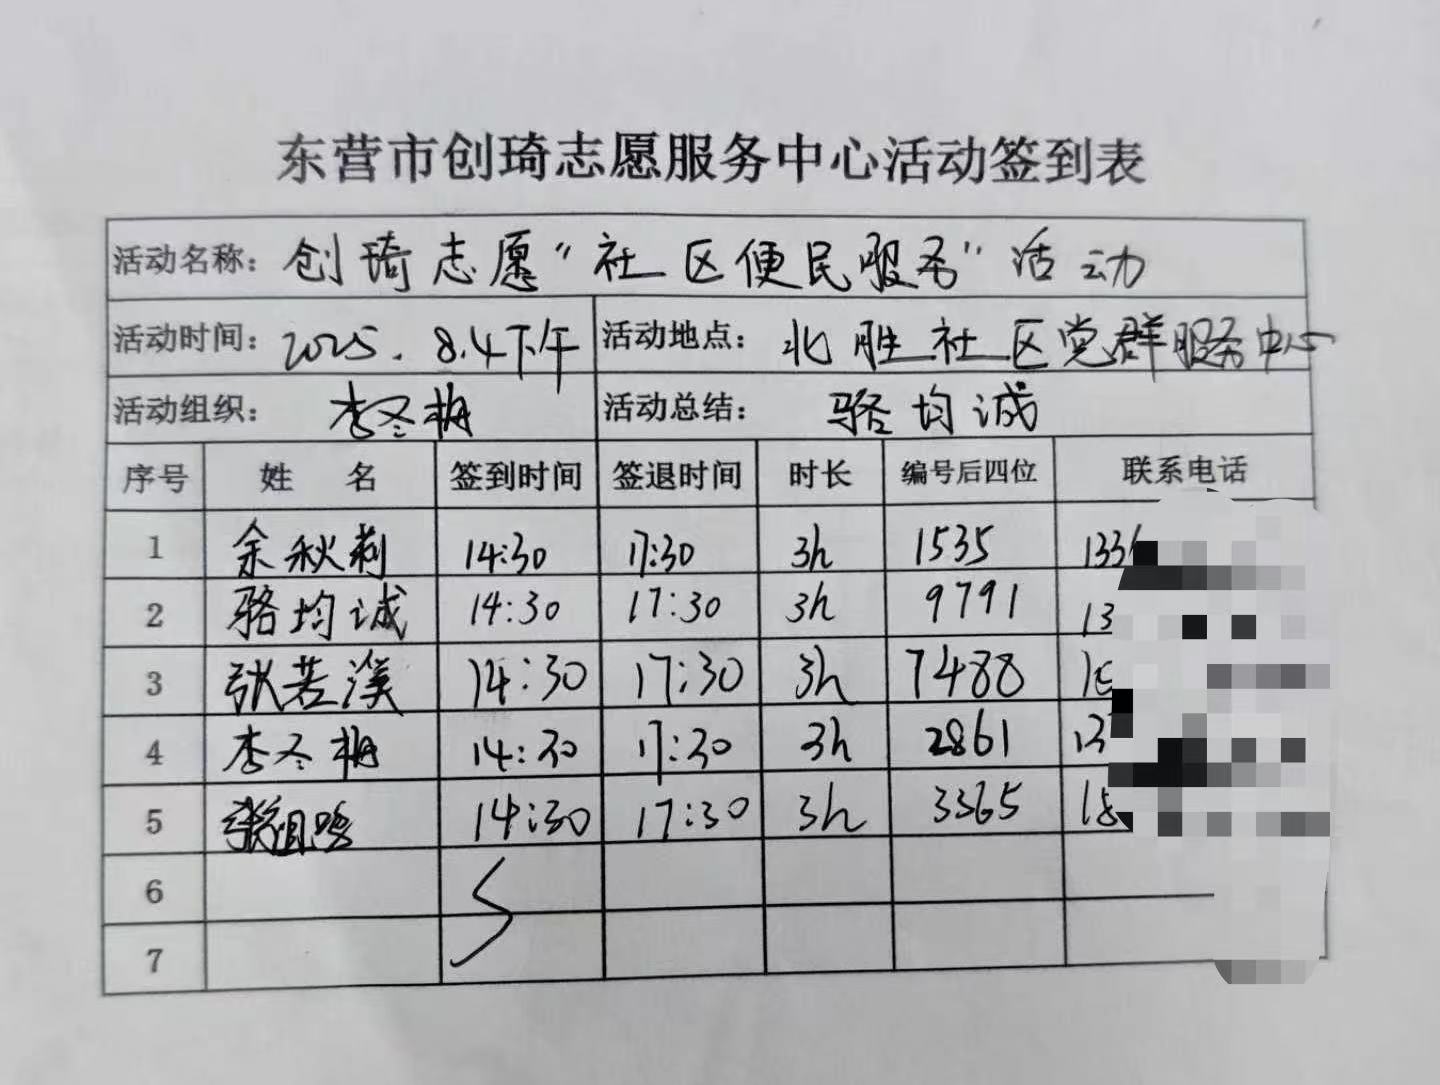 东营市创琦志愿服务中心活动签到表
活动名称：创琦志愿“社区便民服务”活动
活动时间：2025.8.4下午 活动地点：北胜社区党群服务中心
活动组织：李冬梅 活动总结：骆均诚
序号 姓 名 签到时间 签退时间 时长 编号后四位 联系电话
1 余秋莉 14:30 17:30 3h 1535 133
2 骆均诚 14:30 17:30 3h 9791 13
3 张若溪 14:30 17:30 3h 7488 1
4 李冬梅 14:30 17:30 3h 2861 13
5 14:30 17:30 3h 3365 18
6
7